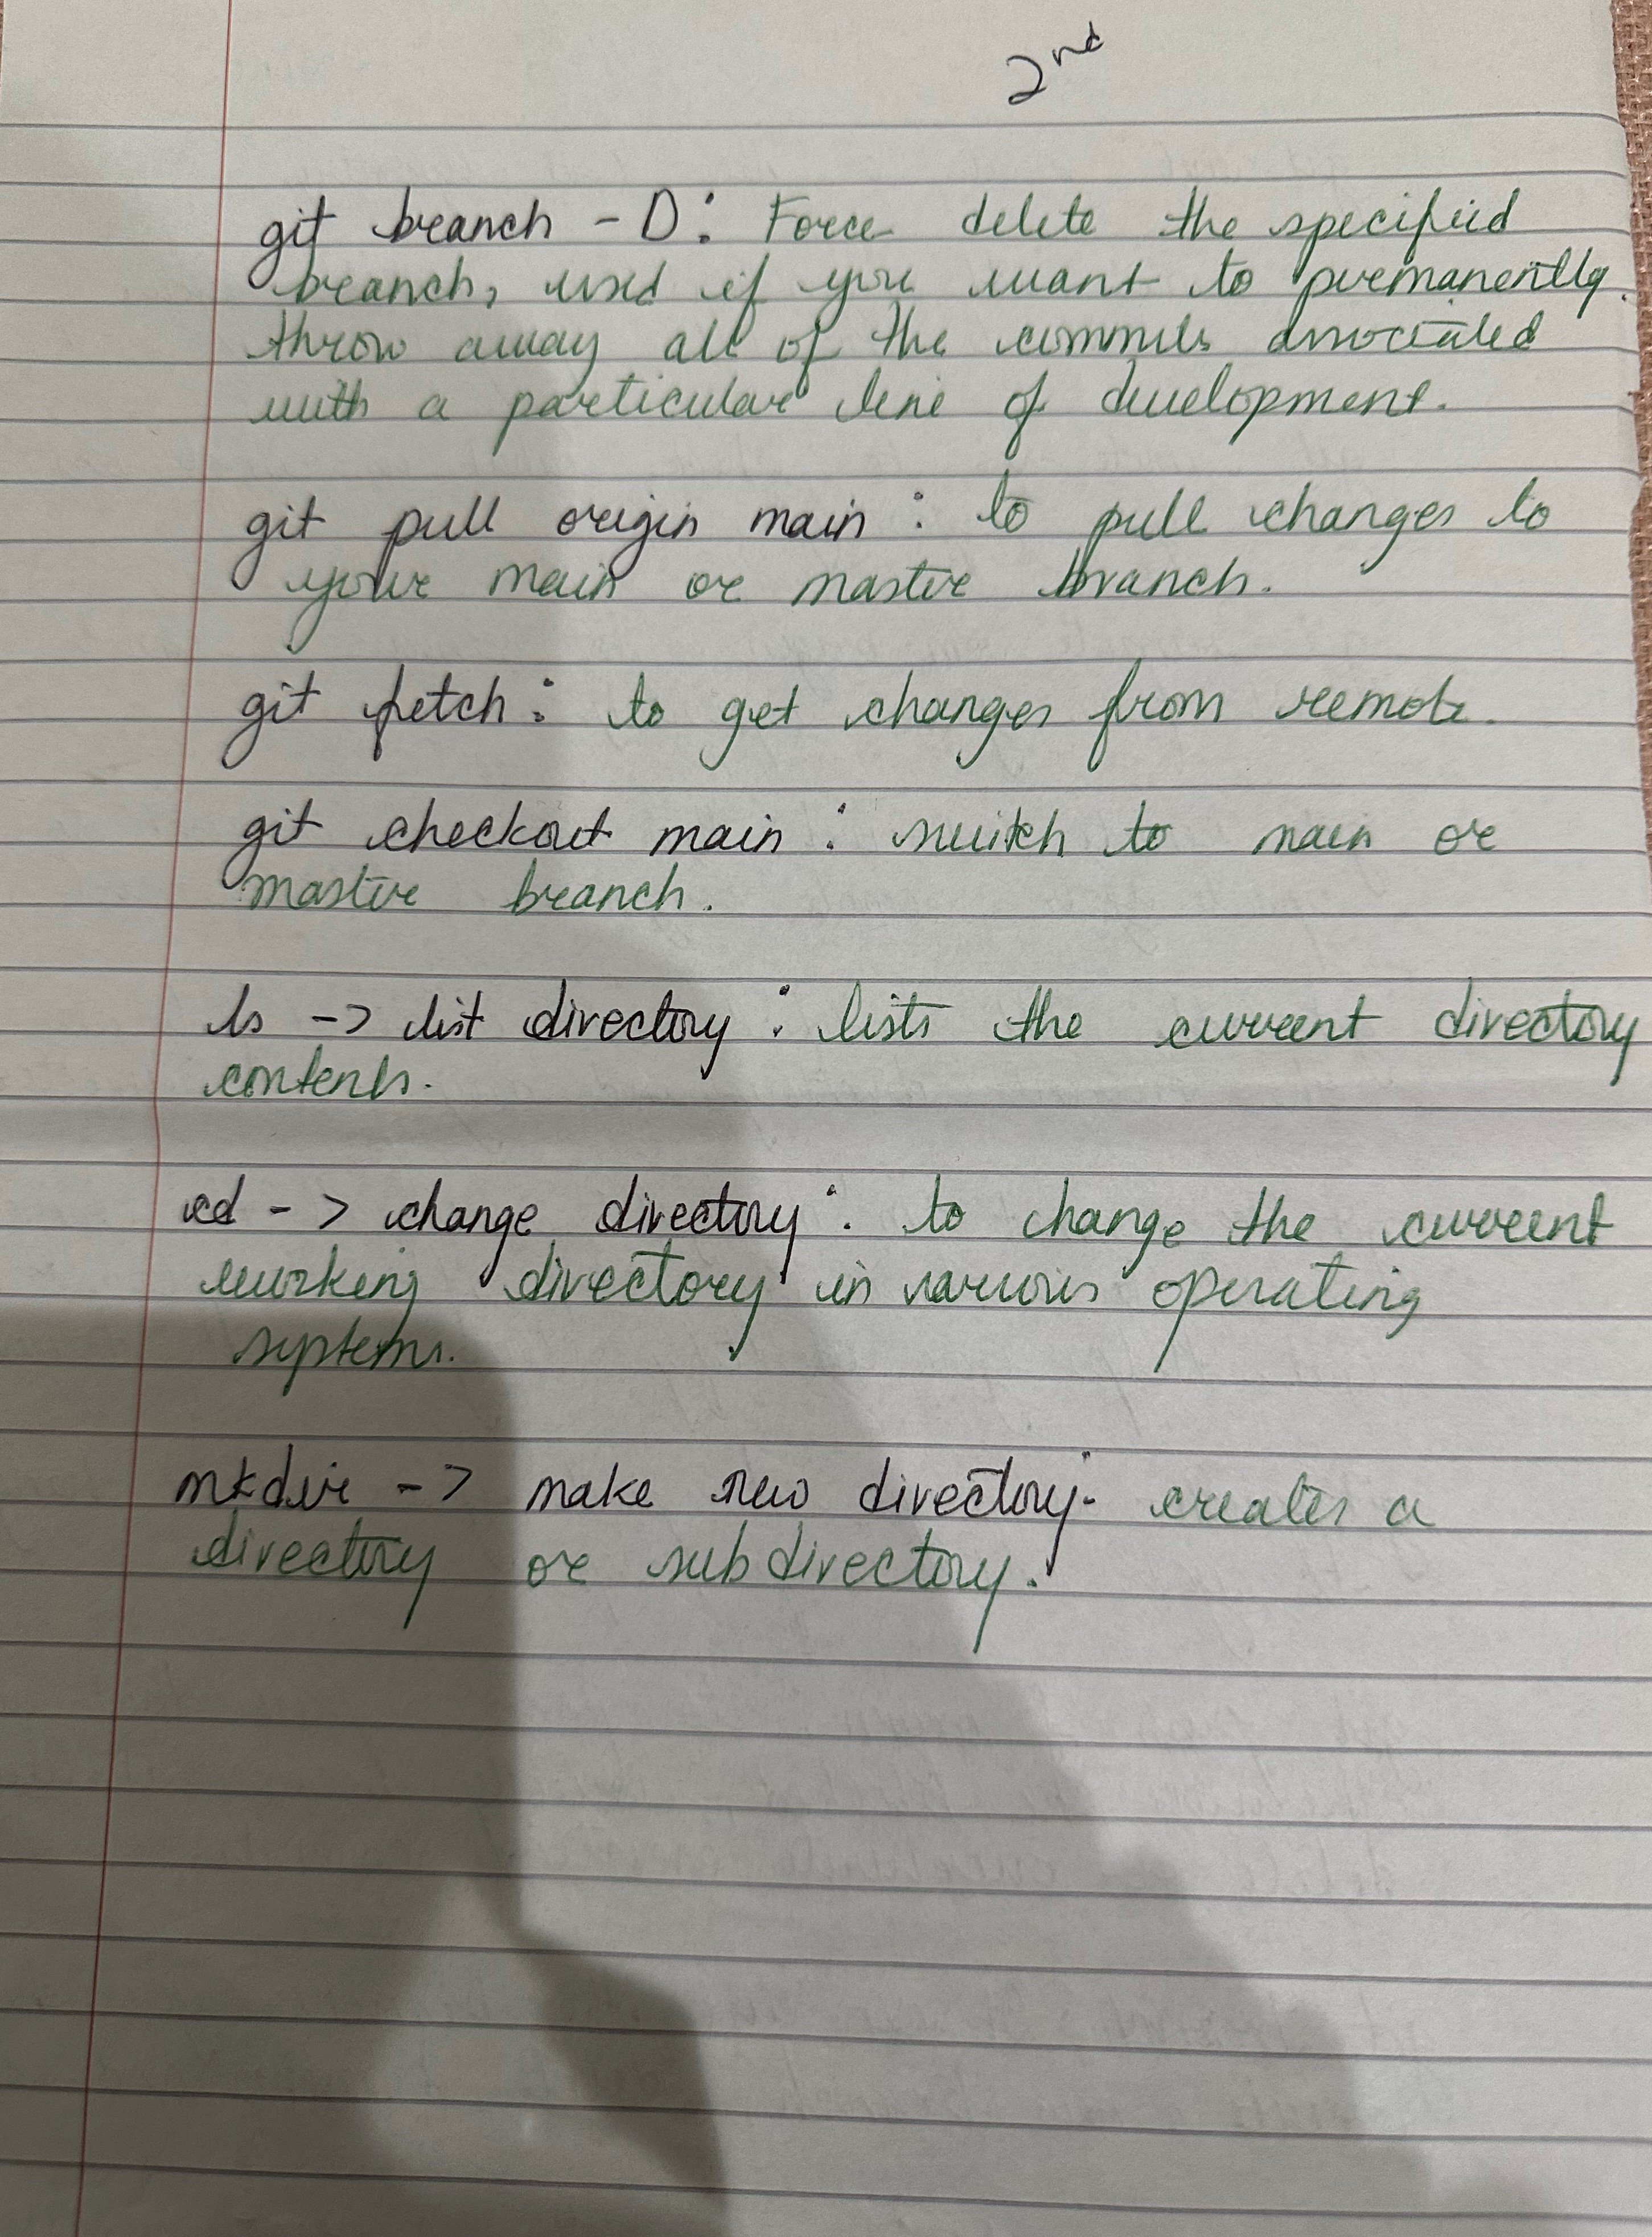 2nd
git branch - D: Force delete the specified
branch, used if you want to permanently
throw away all of the commits associated
with a particular line of development.
git pull origin main : to pull changes to
your main or master branch.
git fetch: to get changes from remote.
git checkout main : switch to main or
master branch.
ls -> list directory : lists the current directory
contents.
cd -> change directory : to change the current
working directory in various operating
systems.
mkdir -> make new directory: creates a
directory or subdirectory.